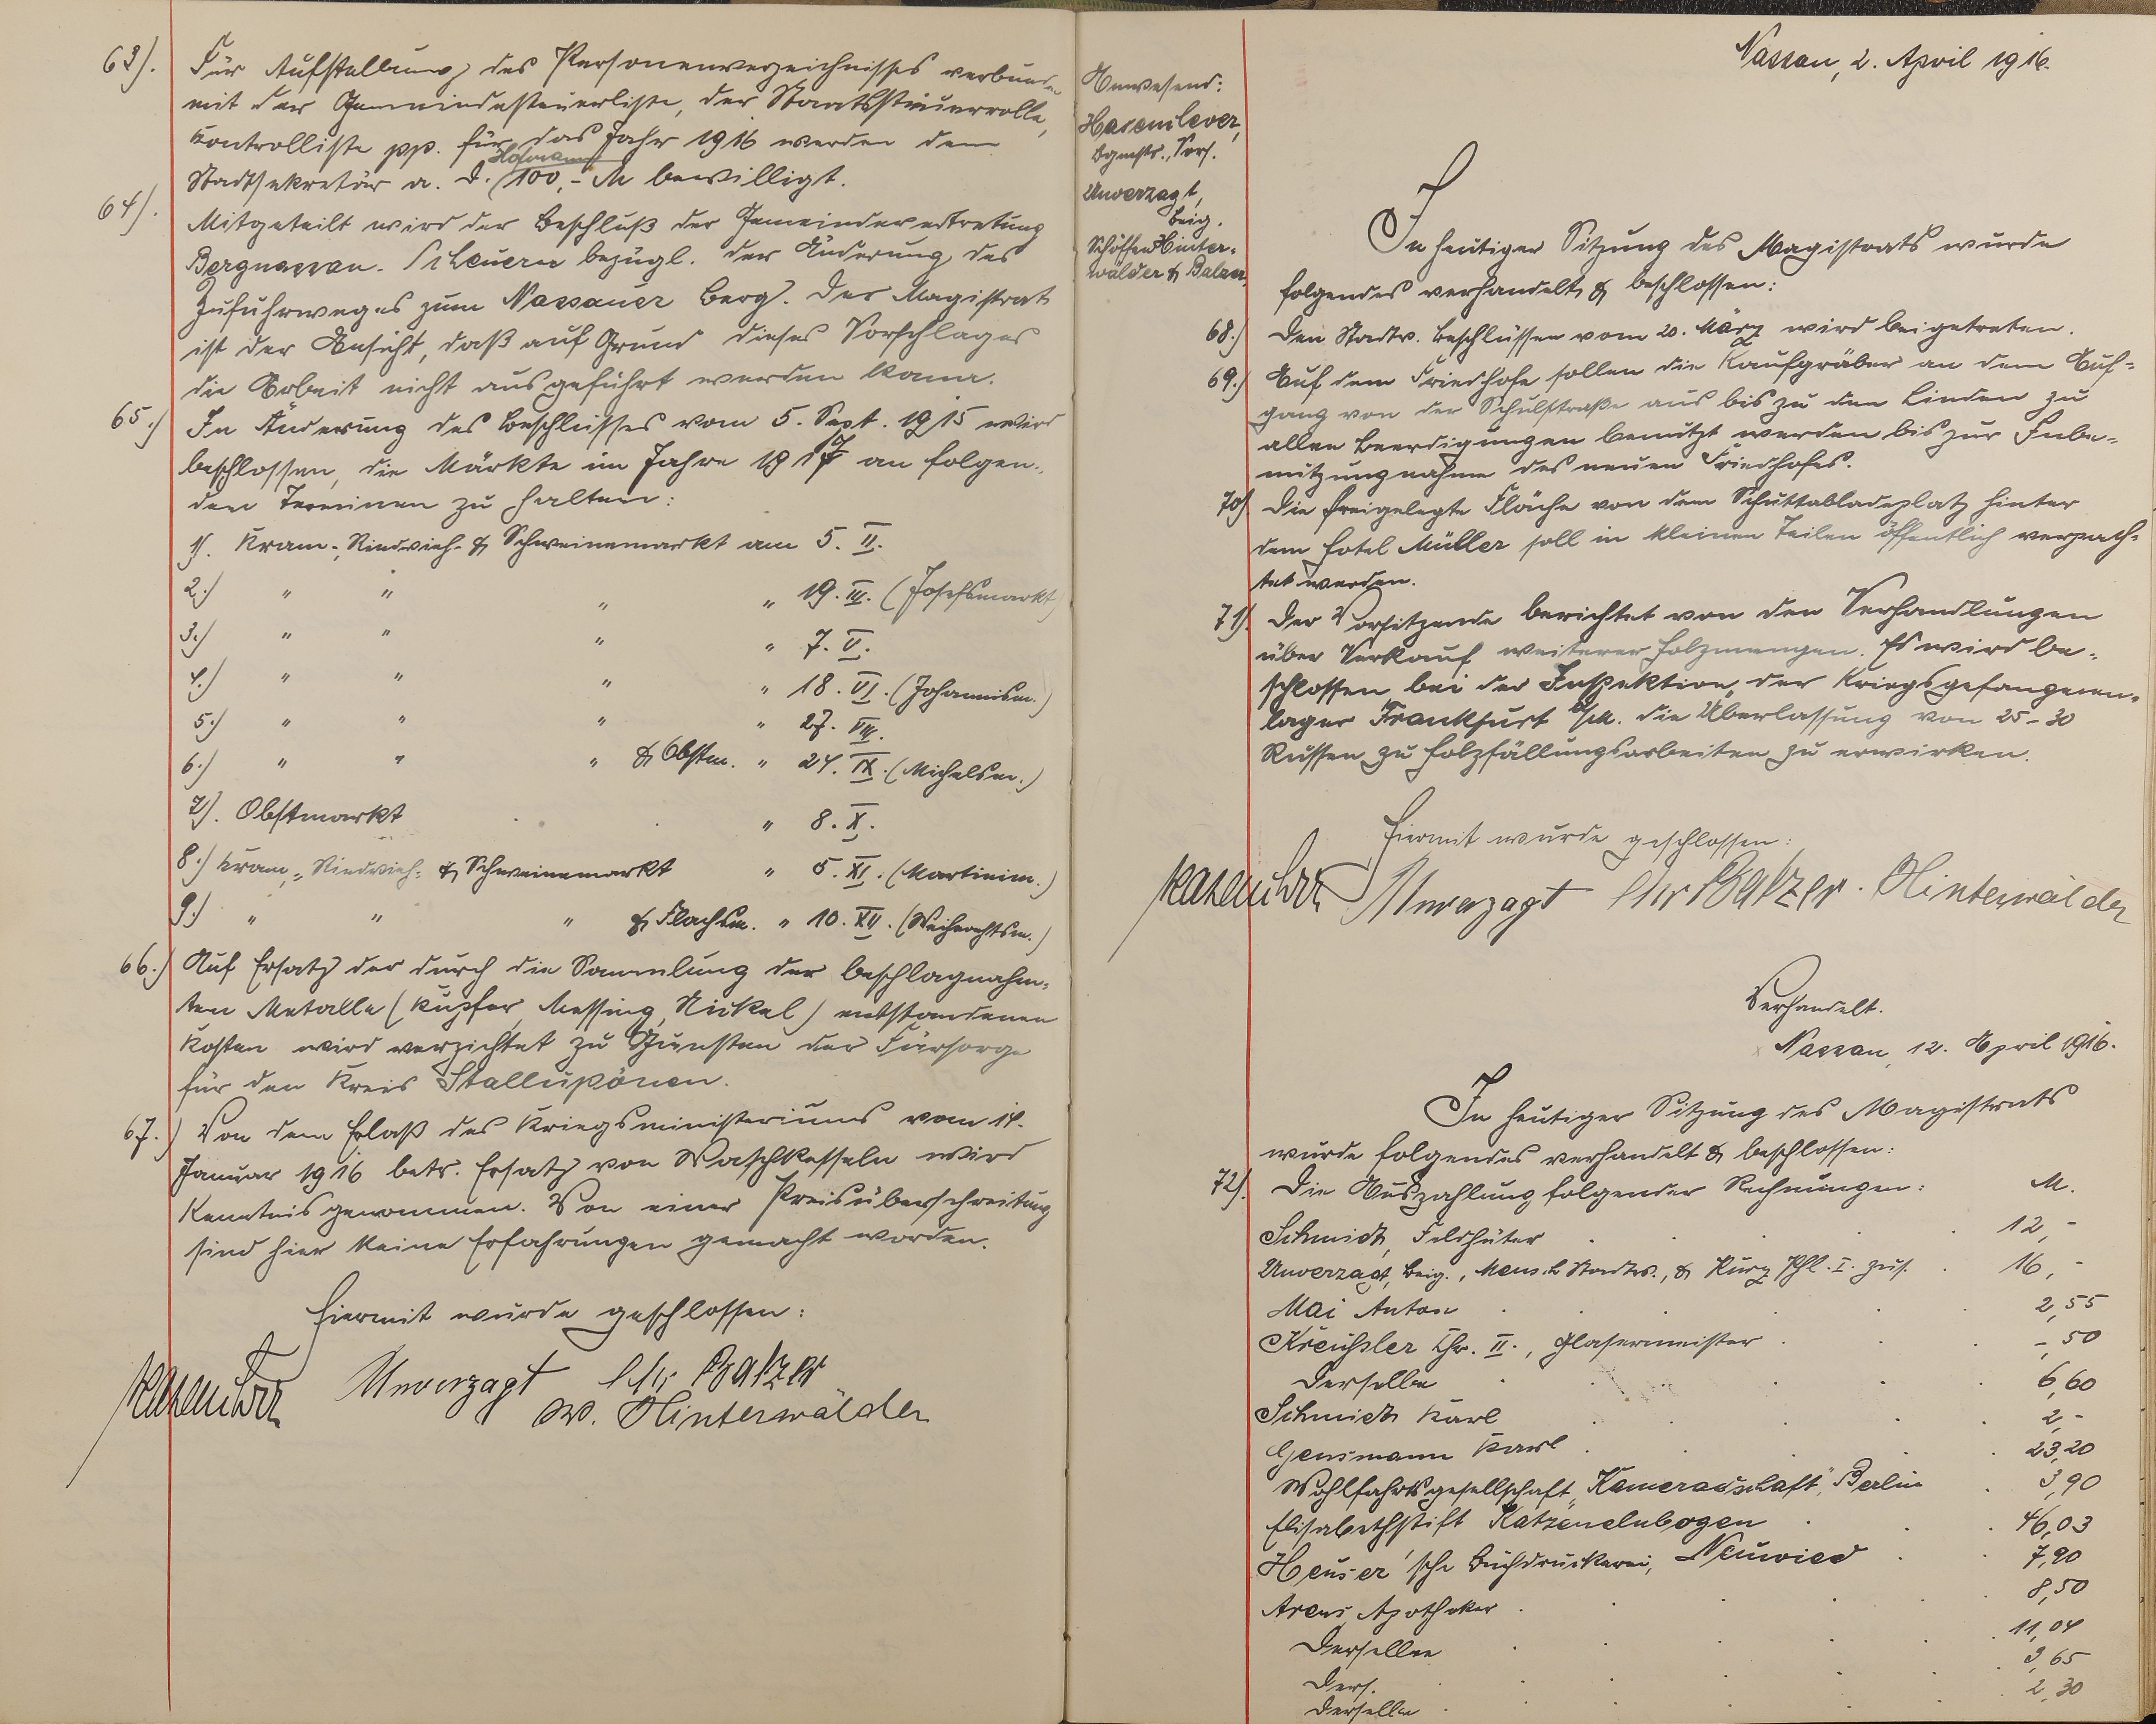 63). Für Aufstellung des Personenverzeichnisses verbunden
mit der Gemeindesteuerliste, der Staatssteuerrolle,
Kontrolliste pp. für das Jahr 1916 werden dem
Stadtsekretär a. D. Hofmann 100,- M bewilligt.
64). Mitgeteilt wird der Beschluß der Gemeindevertretung
Bergnassau-Scheuern bezügl. der Änderung des
Zufuhrweges zum Nassauer Berg. Der Magistrat
ist der Ansicht, daß auf Grund dieses Vorschlages
die Arbeit nicht ausgeführt werden kann.
65.) In Änderung des Beschlusses vom 5. Sept. 1915 wird
beschlossen, die Märkte im Jahre 1917 an folgen-
den Terminen zu halten:
1). Kram-, Rindvieh- & Schweinemarkt am 5. II.
2.) " " " " 19. III. (Josefsmarkt)
3.) " " " " 7. V.
4.) " " " " 18. VI. (Johannism.)
5.) " " " " 27. VIII.
6.) " " " & Obstm. " 24. IX. (Michelsm.)
7). Obstmarkt " 8. X.
8.) Kram-, Rindvieh- & Schweinemarkt " 5. XI. (Martinim.)
9.) " " " & Flachsm. " 10. XII. (Weihnachtsm.)
66.) Auf Ersatz der durch die Sammlung der beschlagnahm-
ten Metalle (Kupfer, Messing, Nickel) entstandenen
Kosten wird verzichtet zu Gunsten der Fürsorge
für den Kreis Stallupönen.
67.) Von dem Erlaß des Kriegsministeriums vom 14.
Januar 1916 betr. Ersatz von Waschkesseln wird
Kenntnis genommen. Von einer Preisüberschreitung
sind hier keine Erfahrungen gemacht worden.
Hiermit wurde geschlossen:
Hasenclever Unverzagt Chr Balzer
W. Hinterwälder
Nassau, 2. April 1916.
Anwesend:
Hasenclever,
Bgmstr., Vors.
Unverzagt,
Beig.
Schöffen Hinter-
wälder & Balzer
In heutiger Sitzung des Magistrats wurde
folgendes verhandelt & beschlossen:
68.) Den Stadtv. Beschlüssen vom 20. März wird beigetreten.
69.) Auf dem Friedhofe sollen die Kaufgräber an dem Auf-
gang von der Schulstraße aus bis zu den Linden zu
allen Beerdigungen benutzt werden bis zur Inbe-
nutzungnahme des neuen Friedhofes.
70) Die freigelegte Fläche von dem Schuttabladeplatz hinter
dem Hotel Müller soll in kleinen Teilen öffentlich verpach-
tet werden.
71). Der Vorsitzende berichtet von den Verhandlungen
über Verkauf weiterer Holzmengen. Es wird be-
schlossen bei der Inspektion der Kriegsgefangenen-
lager Frankfurt a/M. die Überlassung von 25-30
Russen zu Holzfällungsarbeiten zu erwirken.
Hiermit wurde geschlossen:
Hasenclever Unverzagt Chr Balzer. Hinterwälder
Verhandelt.
Nassau, 12. April 1916.
In heutiger Sitzung des Magistrats
wurde folgendes verhandelt & beschlossen:
72). Die Auszahlung folgender Rechnungen: M.
Schmidt, Feldhüter 12,-
Unverzagt, Beig., Stadtv., & Kurz Phl. I. zus. 16,-
Mai Anton 2,55
Kreußler Chr. II., Glasermeister -,50
Derselbe 6,60
Schmidt Karl 2,-
Gensmann Karl 23,20
Wohlfahrtsgesellschaft „Kameradschaft", Berlin 3,90
Elisabethstift Katzenelnbogen 46,03
Heuser'sche Buchdruckerei, Neuwied 7,90
Apotheker 8,50
Derselbe 11,04
Ders. 3,65
Derselbe 2,30